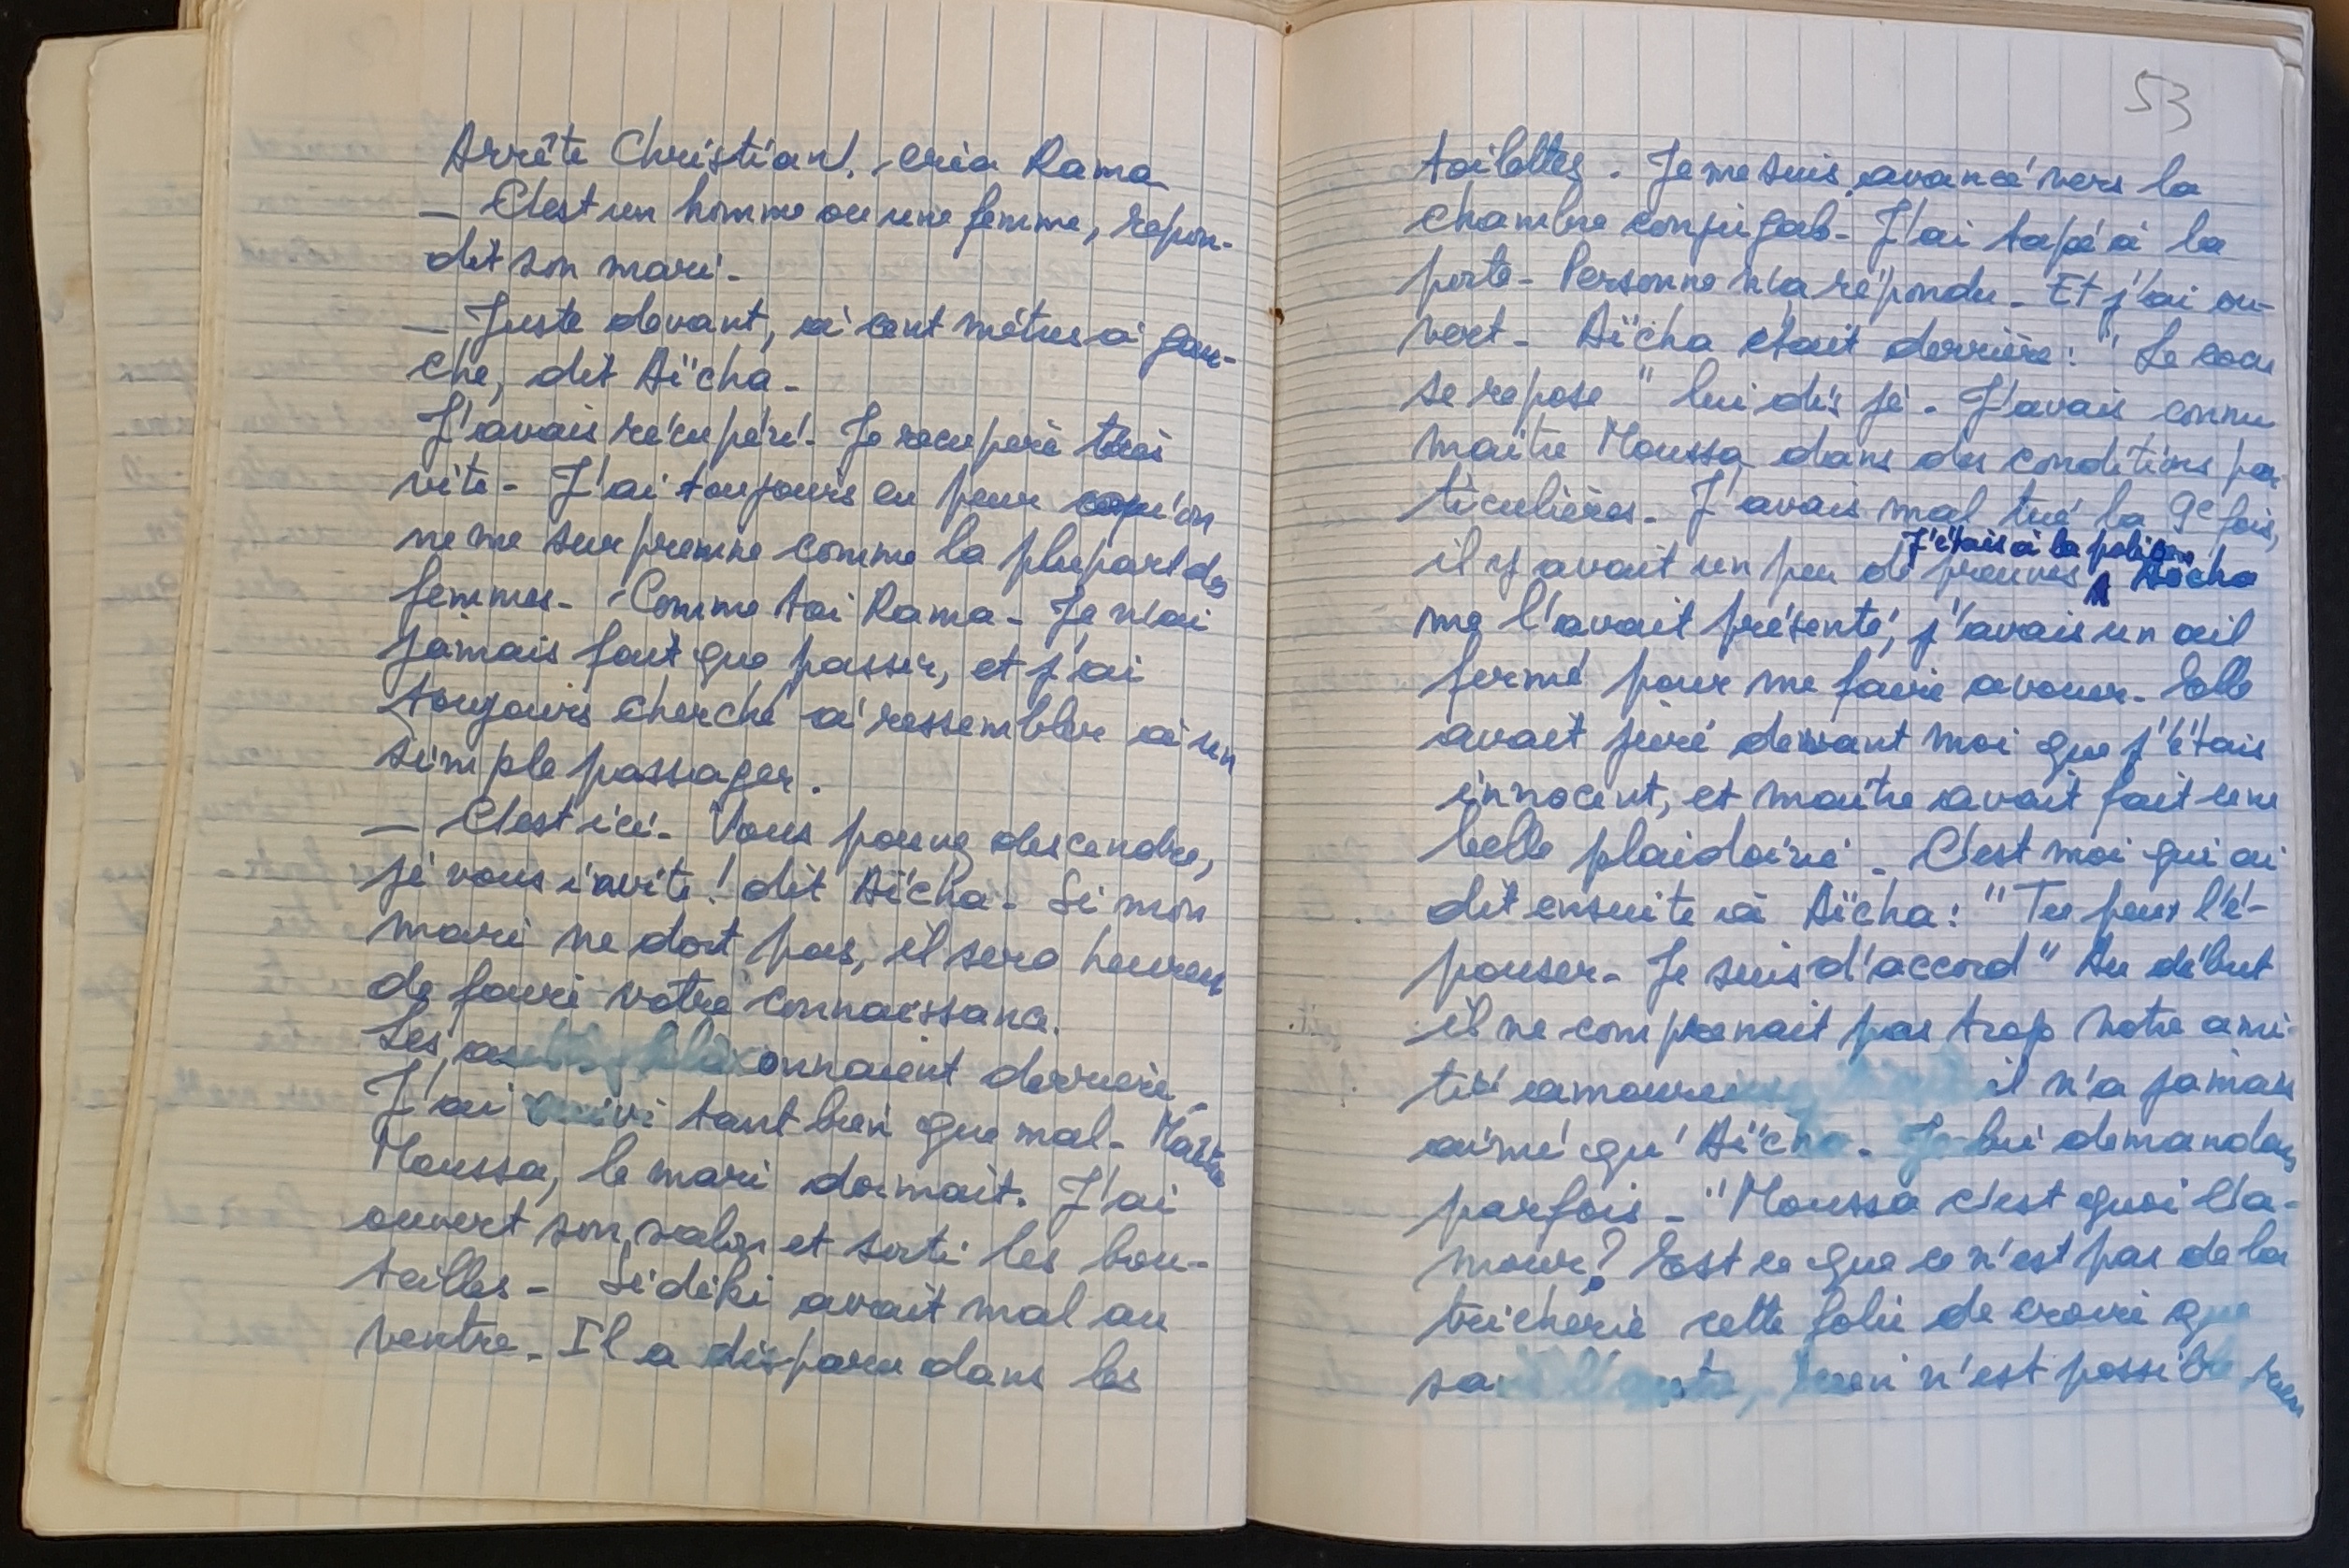 Arrête Christian!, cria Rama
– C'est un homme ou une femme, repon-
dit son mari.
– Juste devant, à cent mètres à gau-
che, dit Aïcha.
J'avais récupéré. Je recupère très
vite. J'ai toujours eu peur qu'on
ne me surprenne comme la plupart des
femmes. Comme toi Rama. Je n'ai
jamais fait que passer, et j'ai
toujours cherché à ressembler à un
simple passager.
– C'est ici. Vous pouvez descendre,
je vous invite! dit Aïcha. Si mon
mari ne dort pas, il sera heureux
de faire votre connaissance.
Les onnaient derrière.
J'ai suivi tant bien que mal. Maître
Moussa, le mari dormait. J'ai
ouvert son salon et sorti les bou-
teilles. Sidiki avait mal au
ventre. Il a disparu dans les
53
toilettes. Je me suis avancé vers la
chambre conjugale. J'ai tapé à la
porte. Personne n'a répondu. Et j'ai ou-
vert. Aïcha était derrière: "Le cocu
se repose" lui dis je. J'avais connu
maître Moussa dans des conditions par
ticulières. J'avais mal tué la 9e fois,
J'étais à la police
il y avait un peu de preuves, Aïcha
me l'avait présenté, j'avais un œil
fermé pour me faire avouer. Elle
avait juré devant moi que j'étais
innocent, et maître avait fait une
belle plaidoirie. C'est moi qui ai
dit ensuite à Aïcha: "Tu peux l'é-
pouser. Je suis d'accord" Au début
il ne comprenait pas trop notre ami-
tié amoureuse il n'a jamais
aimé qu'Aïcha. Je lui demandais
parfois. "Moussa c'est quoi l'a-
mour? Est ce que ce n'est pas de la
tricherie cette folie de croire que
sans l'autre, rien n'est possible rien